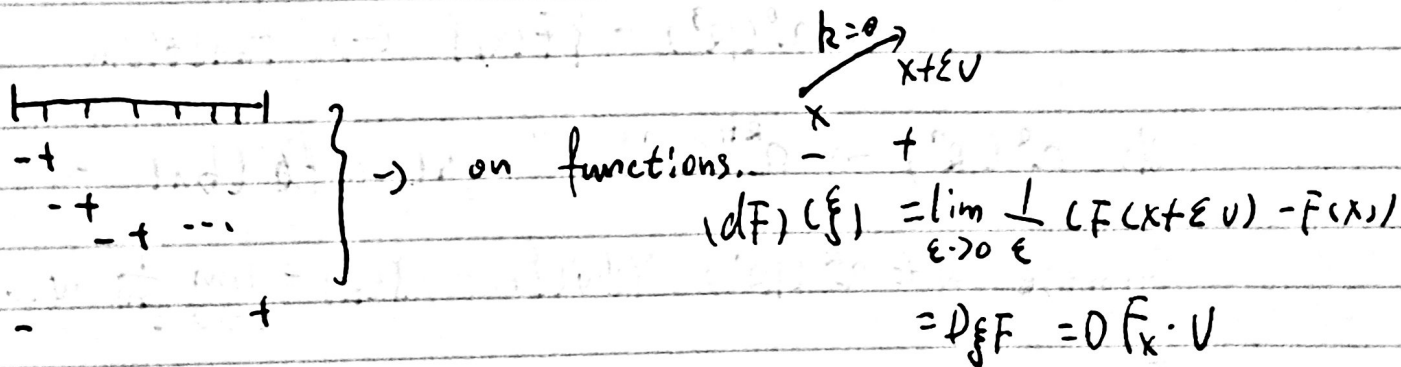 k=0
x+εv
x
-+
-+
-+ ...
- +
} → on functions. - +
(dF)(ξ) = lim ε→0 1/ε (F(x+εv) - F(x))
= DξF = DFx·v